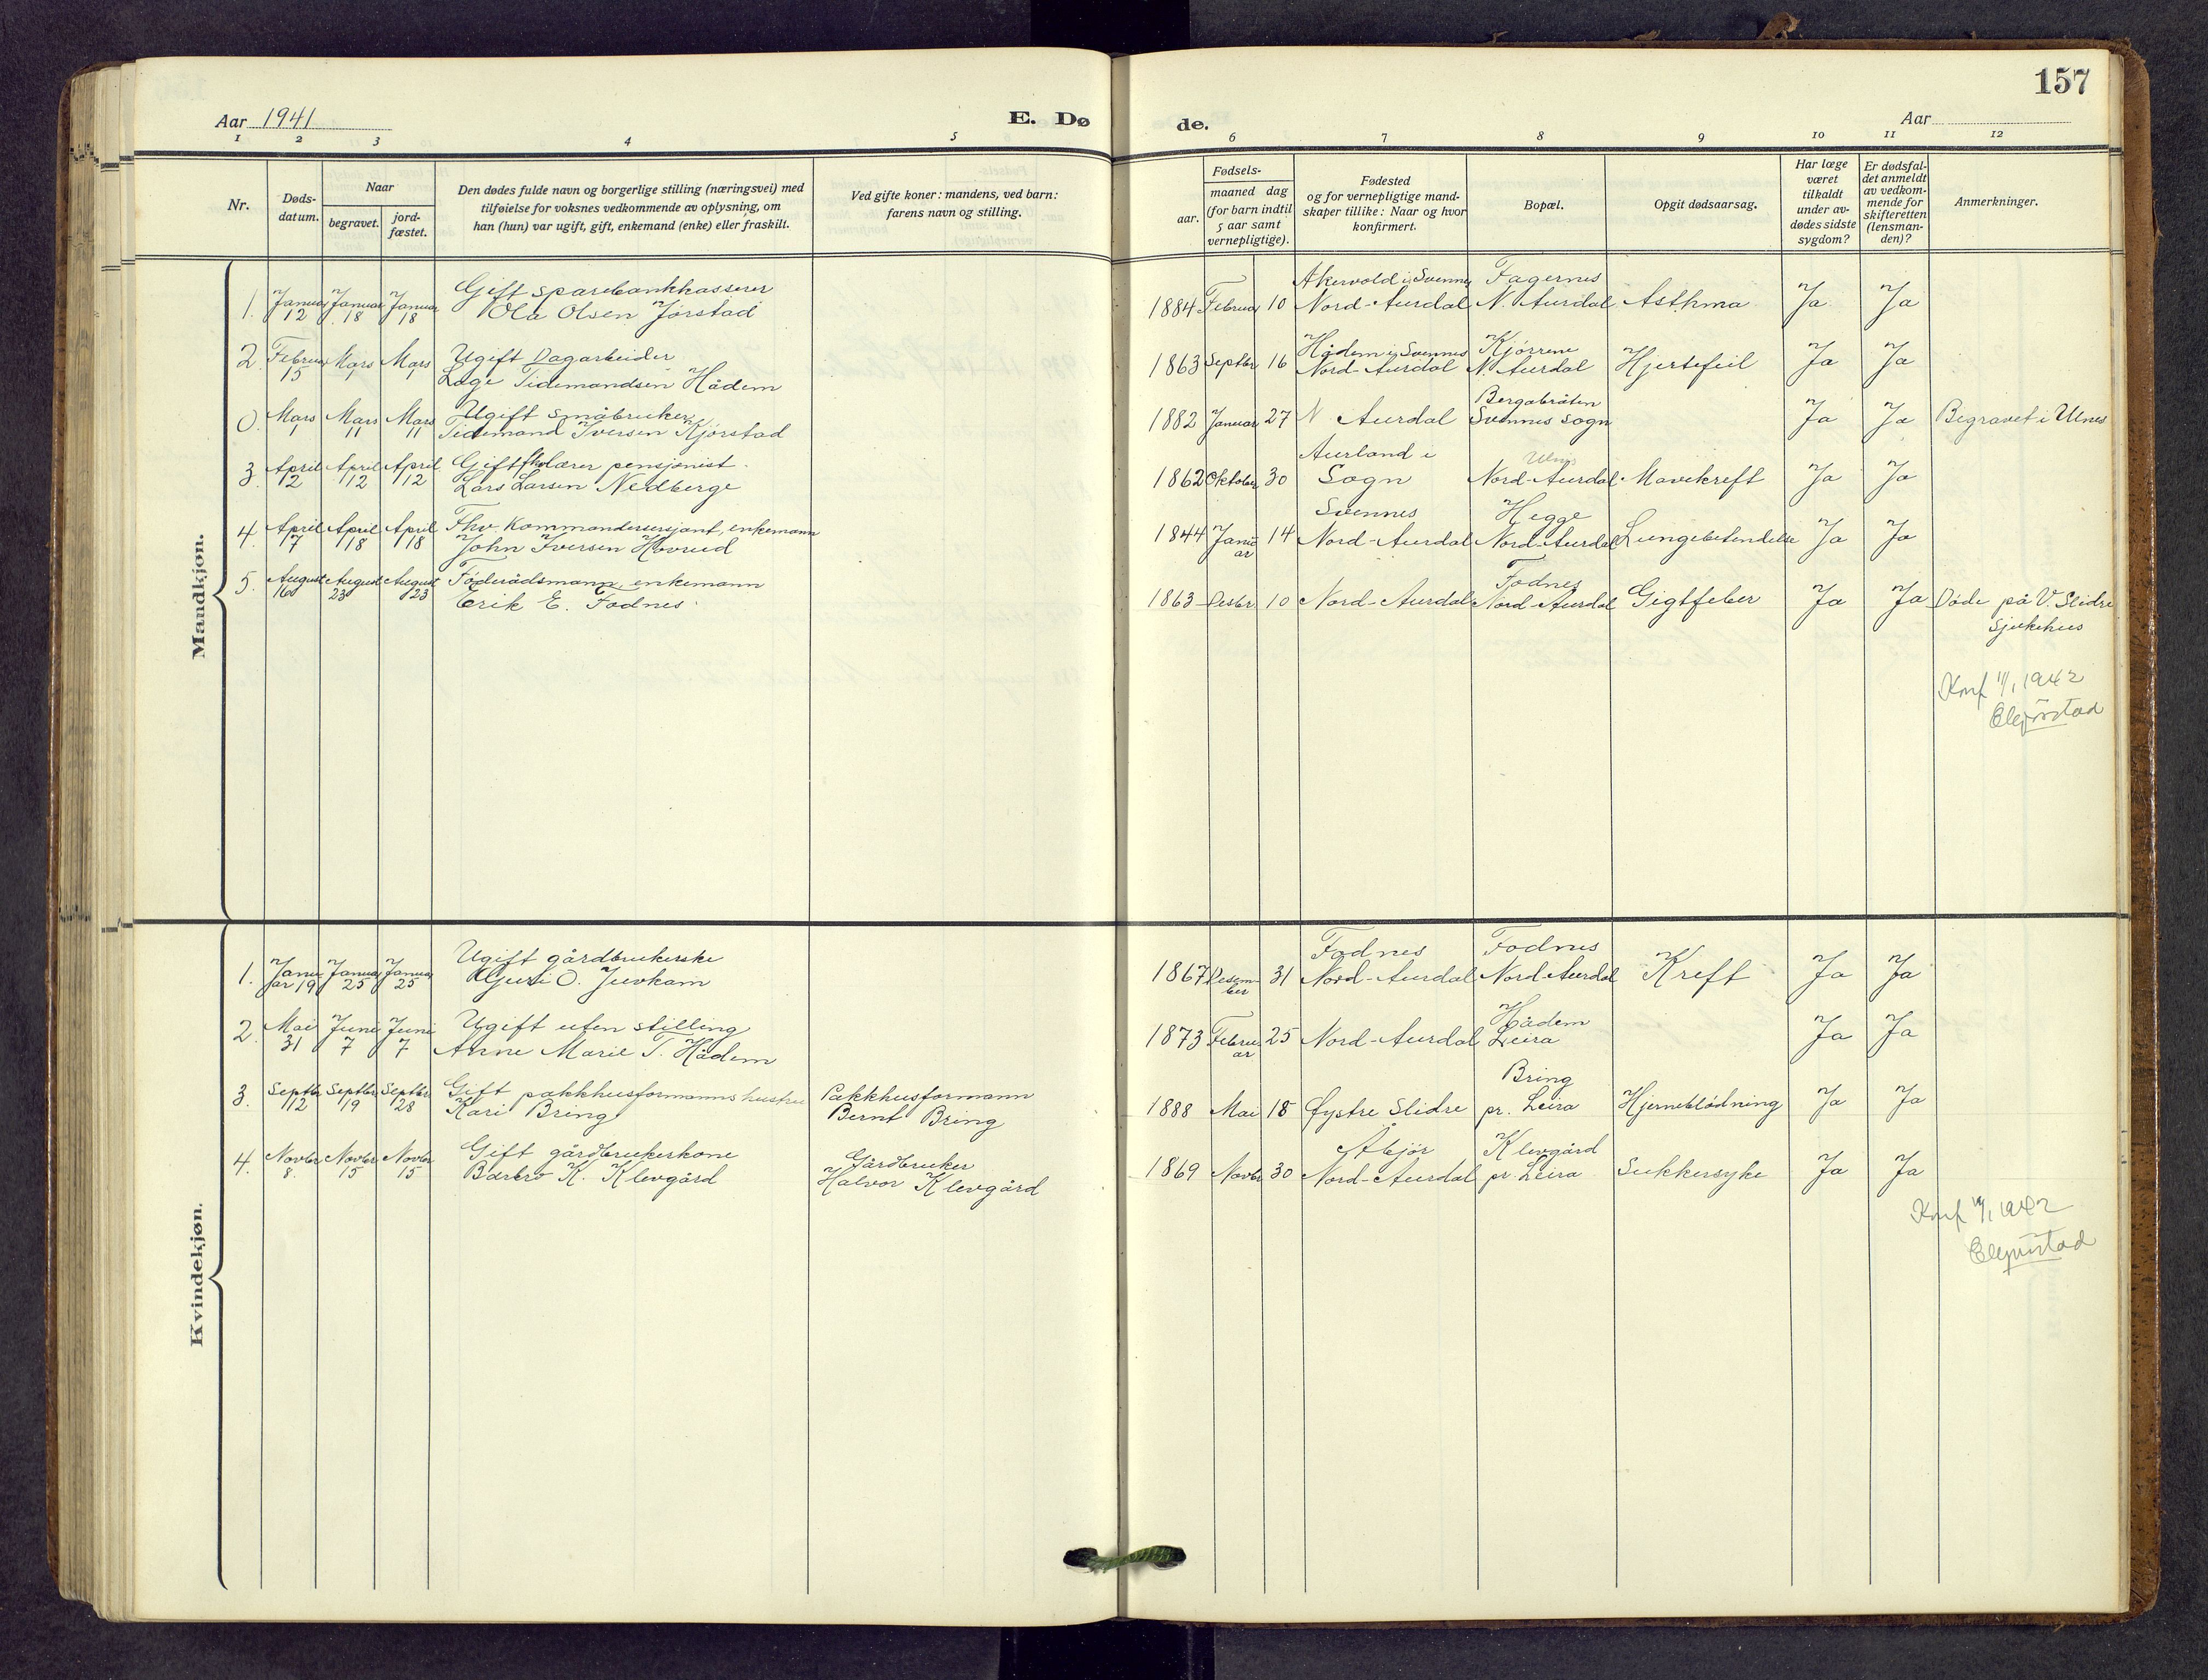 157
Aar 1941
E. Dø
de.
Aar
1 2 3 4 5 6 7 8 9 10 11 12
Nr.
Døds-
datum.
Naar
begravet.
jord-
fæstet.
Den dødes fulde navn og borgerlige stilling (næringsvei) med
tilføielse for voksnes vedkommende av oplysning, om
han (hun) var ugift, gift, enkemand (enke) eller fraskilt.
Ved gifte koner: mandens, ved barn:
farens navn og stilling.
aar.
Fødsels-
maaned dag
(for barn indtil
5 aar samt
vernepligtige).
Fødested
og for vernepligtige mand-
skaper tillike: Naar og hvor
konfirmert.
Bopæl.
Opgit dødsaarsag.
Har læge
været
tilkaldt
under av-
dødes sidste
sygdom?
Er dødsfal-
det anmeldt
av vedkom-
mende for
skifteretten
(lensman-
den)?
Anmerkninger.
Mandkjøn.
Gift sparebankkasserer Akervold i Svennes Fagernes
1. Januar Januar Januar Ola Olsen Jørstad 1884 Februar 10 Nord-Aurdal N. Aurdal Asthma Ja Ja
12 18 18
Ugift Dagarbeider Hådem i Svennes Kjørrene
2. Februar Mars Mars Lage Tidemandsen Hådem 1863 Septbr 16 Nord-Aurdal N. Aurdal Hjertefeil Ja Ja
15 1 1
Ugift småbruker Bergabråten
0. Mars Mars Mars Tidemand Iversen Kjørstad 1882 Januar 27 N Aurdal Svennes sogn Ja Ja Begravet i Ulnes
1 11 11
Gift fhv lærer pensjonist. Aurland i Ulnes
3. April April April Lars Larsen Nedberge 1862 Oktober 30 Sogn Nord-Aurdal Mavekreft Ja Ja
2 12 12
Fhv. Kommandersersjant, enkemann Svennes Hegge
4. April April April John Iversen Hovrud 1844 Januar 14 Nord-Aurdal Nord-Aurdal Lungebetendelse Ja Ja
7 18 18
Føderådsmann, enkemann Fodnes
5. August August August Erik E. Fodnes 1863 Desbr. 10 Nord-Aurdal Nord-Aurdal Gigtfeber Ja Ja Døde på V. Slidre
16 23 23 sjukehus
Konf 11/1 1942
Kvindekjøn.
Ugift gårdbrukerske Fodnes Fodnes
1. Januar Januar Januar Guri O. Juvkam 1867 Desember 31 Nord-Aurdal Nord-Aurdal Kreft Ja Ja
19 25 25
Ugift uten stilling Hådem
2. Mai Juni Juni Anne Marie T. Hådem 1873 Februar 25 Nord-Aurdal Leira Ja Ja
31 7 7
Gift pakkhusformanns hustru Pakkhusformann Bring
3. Septbr Septbr Septbr Kari Bring Bernt Bring 1888 Mai 18 Øystre Slidre pr. Leira Hjerneblødning Ja Ja
12 19 28
Gift gårdbrukerkone Gårdbruker Åbjør Klevgård
4. Novbr Novbr Novbr Barbro K. Klevgård Halvor Klevgård 1869 Novbr 30 Nord-Aurdal pr. Leira Sukkersyke Ja Ja
8. 15 15
Konf 1942